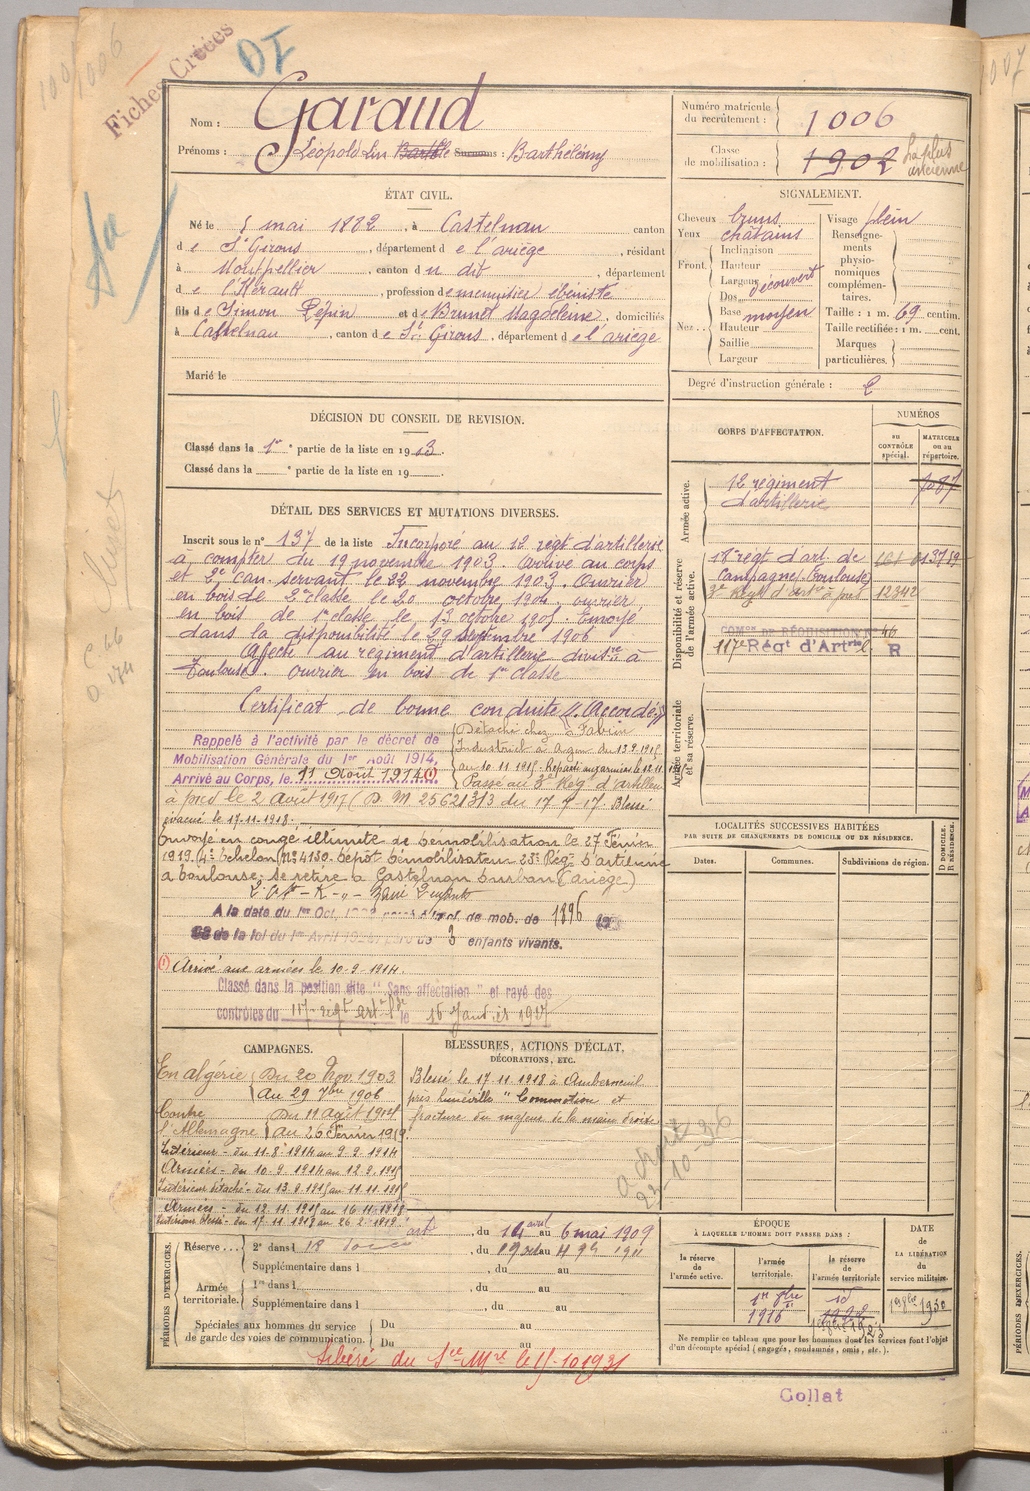 100/1006
Fiches Créées
OI
Nom : Garaud
Prénoms : Léopold Lin Surnoms : Barthélémy
Numéro matricule du recrutement : 1006
Classe de mobilisation : 1902 La plus ancienne
ÉTAT CIVIL.
Né le 5 mai 1882, à Castelnau canton
de St Girons, département de l'ariège, résidant
à Montpellier, canton du dit, département
de l'Hérault, profession de menuisier ébéniste
fils de Simon Pépin et de Brunet Magdeleine, domiciliés
à Castelnau, canton de St Girons, département de l'ariège
Marié le
SIGNALEMENT.
Cheveux bruns
Yeux châtains
Front. Inclinaison
Hauteur
Largeur découvert
Nez Dos
Base moyen
Hauteur
Saillie
Largeur
Visage plein
Renseignements physionomiques complémentaires.
Taille : 1 m. 69 centim.
Taille rectifiée : 1 m. cent.
Marques particulières.
Degré d'instruction générale : 2
DÉCISION DU CONSEIL DE REVISION.
Classé dans la 1re partie de la liste en 1903.
Classé dans la e partie de la liste en 19
CORPS D'AFFECTATION.
NUMÉROS
au CONTRÔLE spécial.
MATRICULE ou au répertoire.
Armée active.
12 régiment d'artillerie
1087
Disponibilité et réserve de l'armée active.
18e régt d'art. de campagne, Toulouse
3e Régt d'artie à pied 12342
COMon DE RÉQUISITION No 46
117e Régt d'Artrie R
Armée territoriale et sa réserve.
DÉTAIL DES SERVICES ET MUTATIONS DIVERSES.
Inscrit sous le n° 137 de la liste Incorporé au 12 régt d'artillerie
à compter du 19 novembre 1903. Arrivé au corps
et 2e can. servant le 22 novembre 1903. Ouvrier
en bois de 2e classe le 20 octobre 1904. ouvrier
en bois de 1e classe le 13 octobre 1905. Envoyé
dans la disponibilité le 29 septembre 1906
Affecté au régiment d'artillerie divisre à
Toulouse. Ouvrier en bois de 1re classe
Certificat de bonne conduite "Accordé"
Rappelé à l'activité par le décret de
Mobilisation Générale du 1er Août 1914,
Arrivé au Corps, le 11 Août 1914 (1)
Détaché chez Fabien
Industriel à Agen du 13.9.1915
au 10.11.1915. Réparti aux armées le 12.11.1915
Passé au 3e Régt d'artillerie
à pied le 2 août 1917 (D. M 25621 3/3 du 17-7-17. Blessé
évacué le 17.11.1918.
Envoyé en congé illimité de démobilisation le 27 Février
1919 (4e échelon) No 4130. dépôt démobilisateur 23e Régt d'artillerie
à Toulouse; se retire à Castelnau Durban (ariège)
A la date du 1er Oct. de mob. de 1896
de la loi du 1er Avril père de 3 enfants vivants.
(1) Arrivé aux armées le 10-9-1914.
Classé dans la position dite "Sans affectation" et rayé des
contrôles du 117e régt artie lde le 15 Janvier 1927
LOCALITÉS SUCCESSIVES HABITÉES
PAR SUITE DE CHANGEMENTS DE DOMICILE OU DE RÉSIDENCE.
Dates.
Communes.
Subdivisions de région.
D DOMICILE. R RÉSIDENCE.
CAMPAGNES.
En algérie Du 20 Nov. 1903
Au 29 7bre 1906
Contre l'Allemagne Du 11 août 1914
au 26 Février 1919
Intérieur - du 11-8-1914 au 9-9-1914
Armées - du 10-9-1914 au 12-9-1915
Intérieur détaché - du 13-9-1915 au 11-11-1915
Armées - du 12-11-1915 au 16-11-1918
Intérieur blessé - du 17-11-1918 au 26-2-1919
BLESSURES, ACTIONS D'ÉCLAT, DÉCORATIONS, ETC.
Blessé le 17.11.1918 à Amberneuil
près Lunéville "Commotion et
fracture du majeur de la main droite
22-10-36
PÉRIODES D'EXERCICES.
du 14 avril au 6 mai 1909
Réserve 2e dans l 18 du 19 oct au 4 9b 1911
Supplémentaire dans l , du au
Armée territoriale. 1re dans l , du au
Supplémentaire dans l , du au
Spéciales aux hommes du service de garde des voies de communication. Du au
Du au
Libéré du Sce Mre le 15-10 1931
ÉPOQUE
À LAQUELLE L'HOMME DOIT PASSER DANS :
la réserve de l'armée active.
l'armée territoriale.
la réserve de l'armée territoriale
DATE de LA LIBÉRATION du service militaire.
1916
1930
Ne remplir ce tableau que pour les hommes dont les services font l'objet
d'un décompte spécial (engagés, condamnés, omis, etc.).
Collat